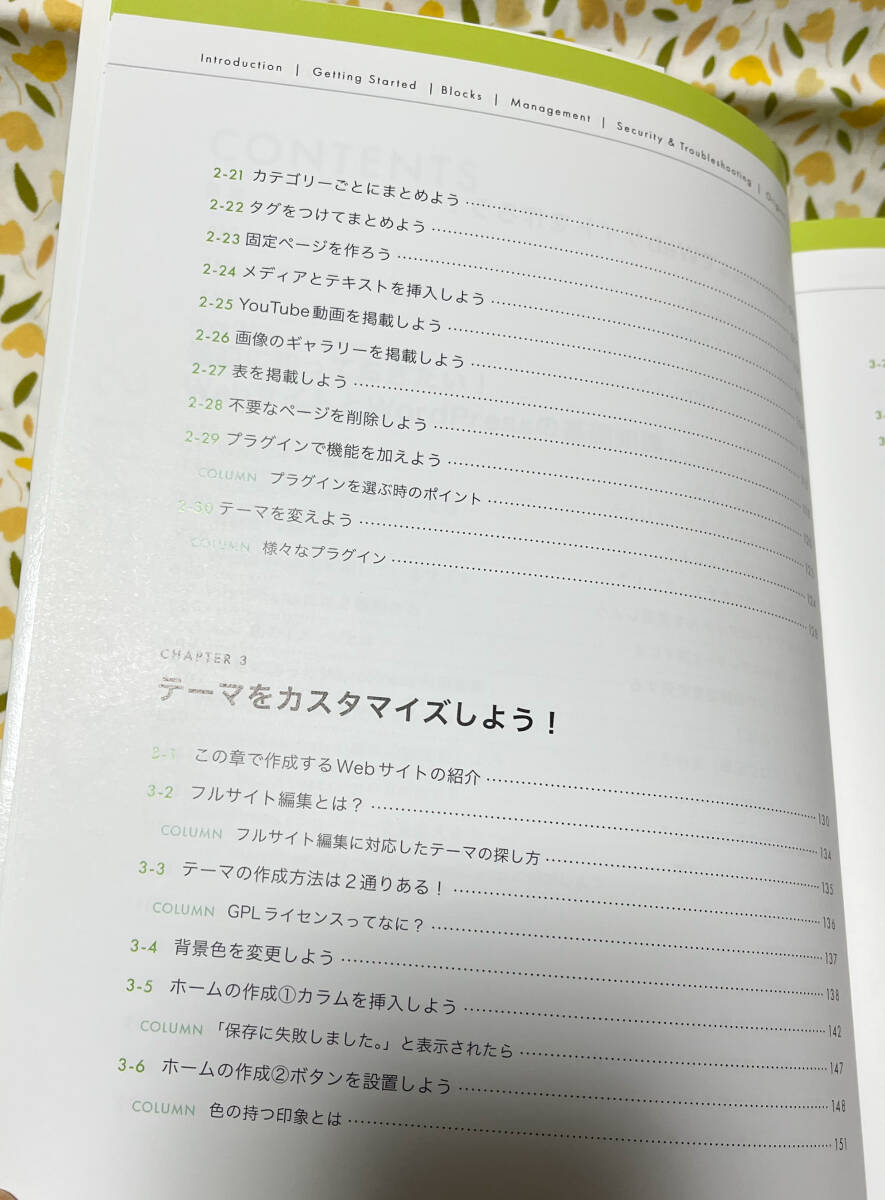 Introduction | Getting Started | Blocks | Management | Security & Troubleshooting |
2-21 カテゴリーごとにまとめよう
2-22 タグをつけてまとめよう
2-23 固定ページを作ろう
2-24 メディアとテキストを挿入しよう
2-25 YouTube動画を掲載しよう
2-26 画像のギャラリーを掲載しよう
2-27 表を掲載しよう
2-28 不要なページを削除しよう
2-29 プラグインで機能を加えよう
COLUMN プラグインを選ぶ時のポイント
2-30 テーマを変えよう 124
COLUMN 様々なプラグイン 128
CHAPTER 3
テーマをカスタマイズしよう！
3-1 この章で作成するWebサイトの紹介 130
3-2 フルサイト編集とは？ 134
COLUMN フルサイト編集に対応したテーマの探し方 135
3-3 テーマの作成方法は２通りある！ 136
COLUMN GPLライセンスってなに？ 137
3-4 背景色を変更しよう 138
3-5 ホームの作成①カラムを挿入しよう 142
COLUMN 「保存に失敗しました。」と表示されたら 147
3-6 ホームの作成②ボタンを設置しよう 148
COLUMN 色の持つ印象とは 151